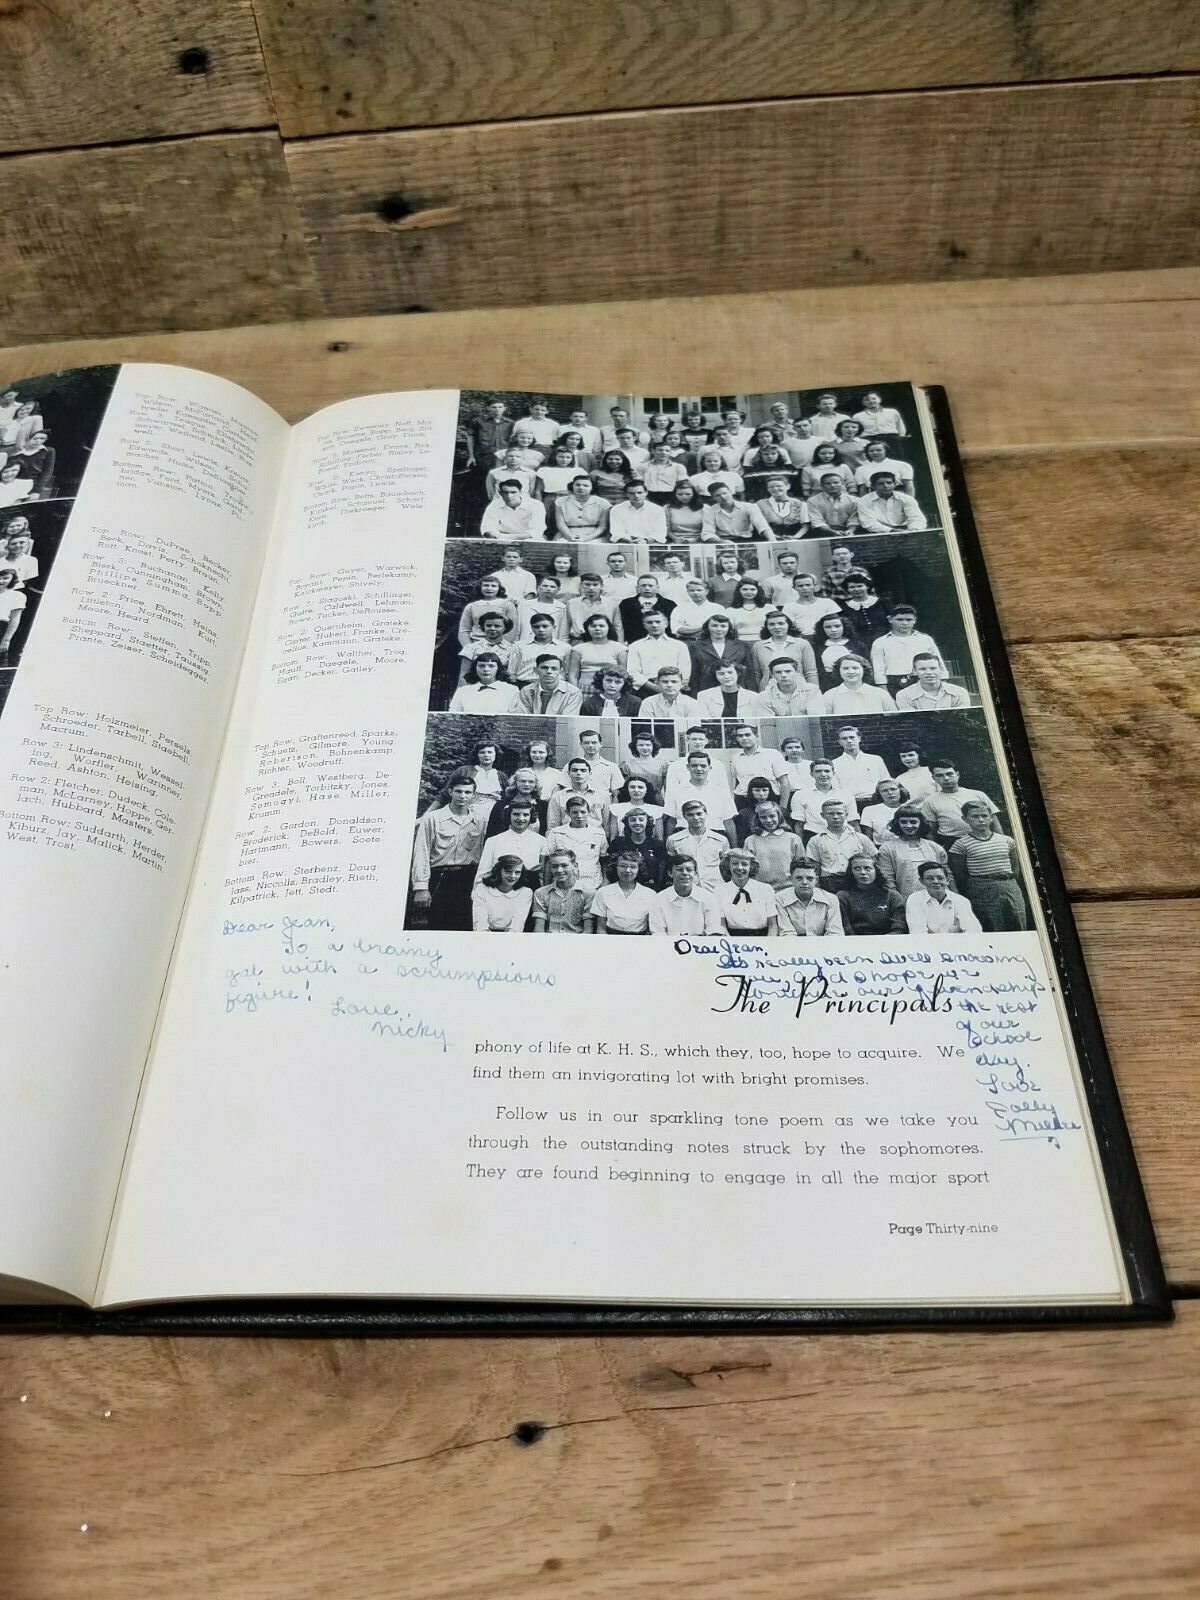 Top Row:
Row 3:
well.
Row 2: Short, Lewis, Krause,
Edwards, Wilson,
Bottom Row: Patton,
bridge, Ford, Myers,
man.
Top Row: DuPree, Becker,
Beck, Davis, Schoknecht,
Rott, Knost, Perry, Braun.
Row 3: Buchanan, Kelly,
Bierk, Cunningham, Brown,
Phillips, Summa, Bopp,
Brueckner.
Row 2: Price, Ehrett, Heins,
Littleton, Nordman, Kurt,
Moore, Heard.
Bottom Row: Steffen, Tripp,
Sheppard, Staetter, Taussig,
Prante, Zeiser, Scheidegger.
Top Row: Holzmeier, Persels,
Schroeder, Tarbell, Staebell,
Macrum.
Row 3: Lindenschmit, Wessel
ing, Worfler, Warinner,
Reed, Ashton, Heising.
Row 2: Fletcher, Dudeck, Cole-
man, McLarney, Hoppe, Ger-
lach, Hubbard, Masters.
Bottom Row: Suddarth, Herder,
Kiburz, Jay, Malick, Martin,
West, Trost.
Top Row: Sweeney, Neff,
Browne, Bopp, Berg,
Daegele, Gray, Finch.
Row 3: Meissner, Evans, Rek,
Schilling, Ferber, Risley, Le-
Bond, Endicott.
Row 2: Kanyo, Spellinger,
Weck, Christoffersen,
Popin, Lewis.
Bottom Row: Betts, Baumbach,
Kunkel, Schanuel, Scharf,
Kern, Diekroeger, Weis-
kirch.
Top Row: Guyer, Warwick,
Bryant, Pepin, Berlekamp,
Knickmeyer, Shively.
Row 3: Stagoski, Schillinger,
Guire, Caldwell, Lehman,
Rowe, Tucker, DeRousse.
Row 2: Quernheim, Grateke,
Carver, Hubert, Franke, Cre-
celius, Kammann, Grateke.
Bottom Row: Walther, Trog,
Hauff, Daegele, Moore,
Egan, Decker, Gatley.
Top Row: Graftenreed, Sparks,
Schuetz, Gilmore, Young,
Robertson, Bohnenkamp,
Richter, Woodruff.
Row 3: Boll, Westberg, De-
Grendele, Torbitzky, Jones,
Somogyi, Hase, Miller,
Krumm.
Row 2: Gordon, Donaldson,
Broderick, DeBold, Euwer,
Hartmann, Bowers, Soete
bier.
Bottom Row: Sterbenz, Doug-
lass, Niccolls, Bradley, Rieth,
Kilpatrick, Jett, Stedt.
Dear Jean,
To a brainy
gal with a scrumpsious
figure!
Love,
Nicky
Dear Jean,
It's really been swell knowing
you and I hope we
continue our friendship
the rest
of our
school
day.
Love
Sally
Miller
The Principals
phony of life at K. H. S., which they, too, hope to acquire. We
find them an invigorating lot with bright promises.
Follow us in our sparkling tone poem as we take you
through the outstanding notes struck by the sophomores.
They are found beginning to engage in all the major sport
Page Thirty-nine